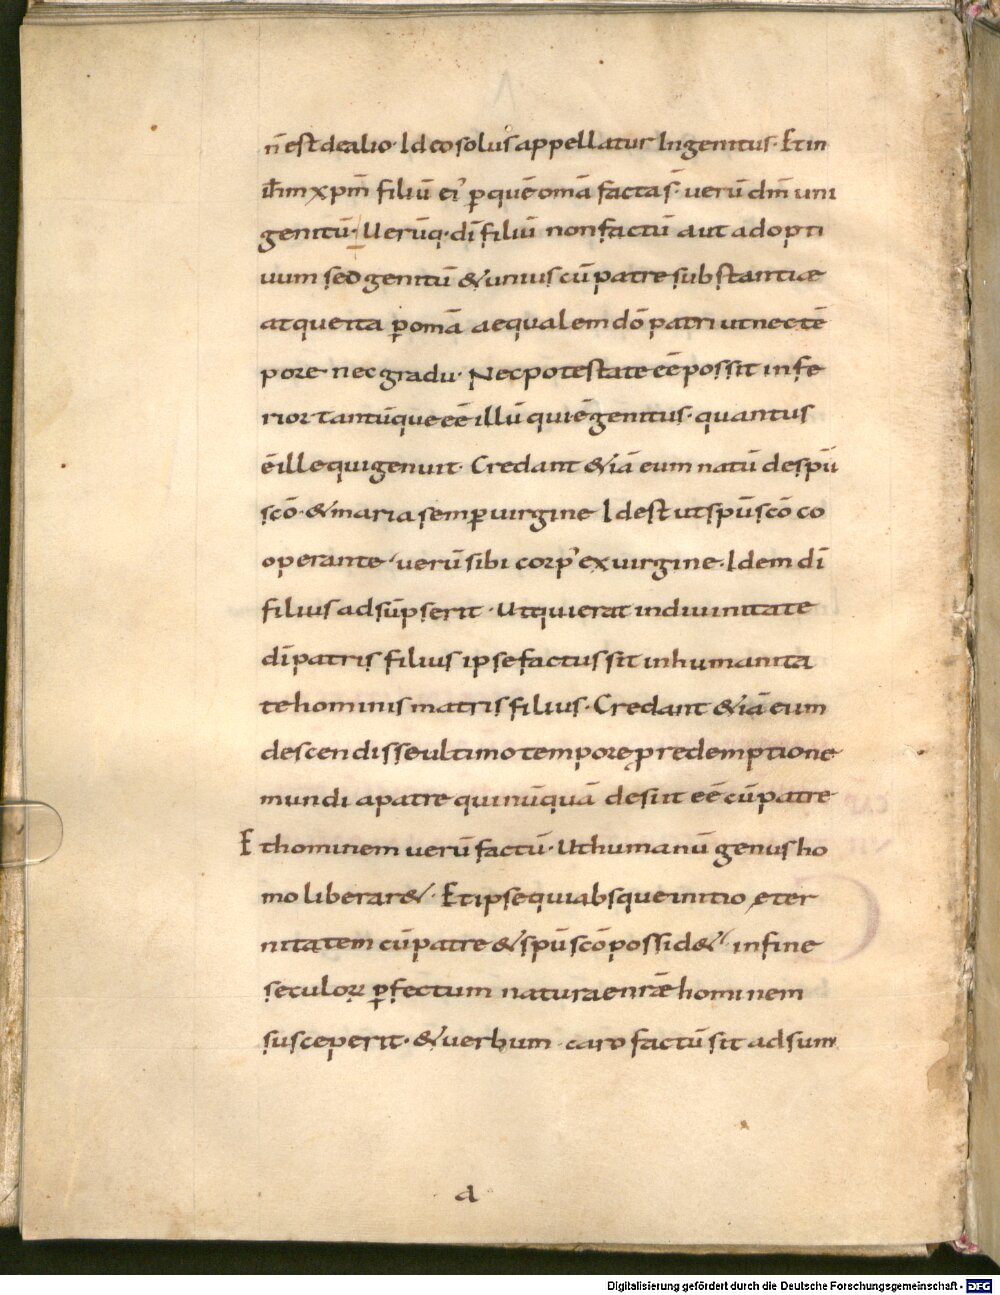 n̄ est de alio· Ideo solus appellatur Ingenitus· Et in
ih̄m xp̄m filiū ei᾽ p̱ quē om̄a facta s̄· verū dn̄m uni
genitū· Uerūq· dī filiū non factū aut adopti
uum sed genitū & unius cū patre substantiae
atque ita p̱ om̄a aequalem dō patri ut nec tē
pore nec gradu· Nec potestate eē possit infe
rior tantūque eē illū qui ē genitus· quantus
ē ille qui genuit· Credant &iā eum natū de spū
scō· & maria semp̱ uirgine Idest ut spū scō co
operante· verū sibi corp᾽ ex uirgine· Idem dī
filius adsūpserit· Ut qui erat in diuinitate
dī patris filius ipse factus sit in humanita
te hominis matris filius· Credant &iā eum
descendisse ultimo tempore p̱ redemptione
mundi a patre qui nūquā desiit eē cū patre
Et hominem uerū factū· Ut humanū genus ho
mo liberar&· Et ipse qui absque initio ęter
nitatem cū patre & spū scō possid&· in fine
seculoꝝ p̱fectum naturae nr̄ae hominem
susceperit· & uerbum caro factū sit adsum
d
Digitalisierung gefördert durch die Deutsche Forschungsgemeinschaft - DFG